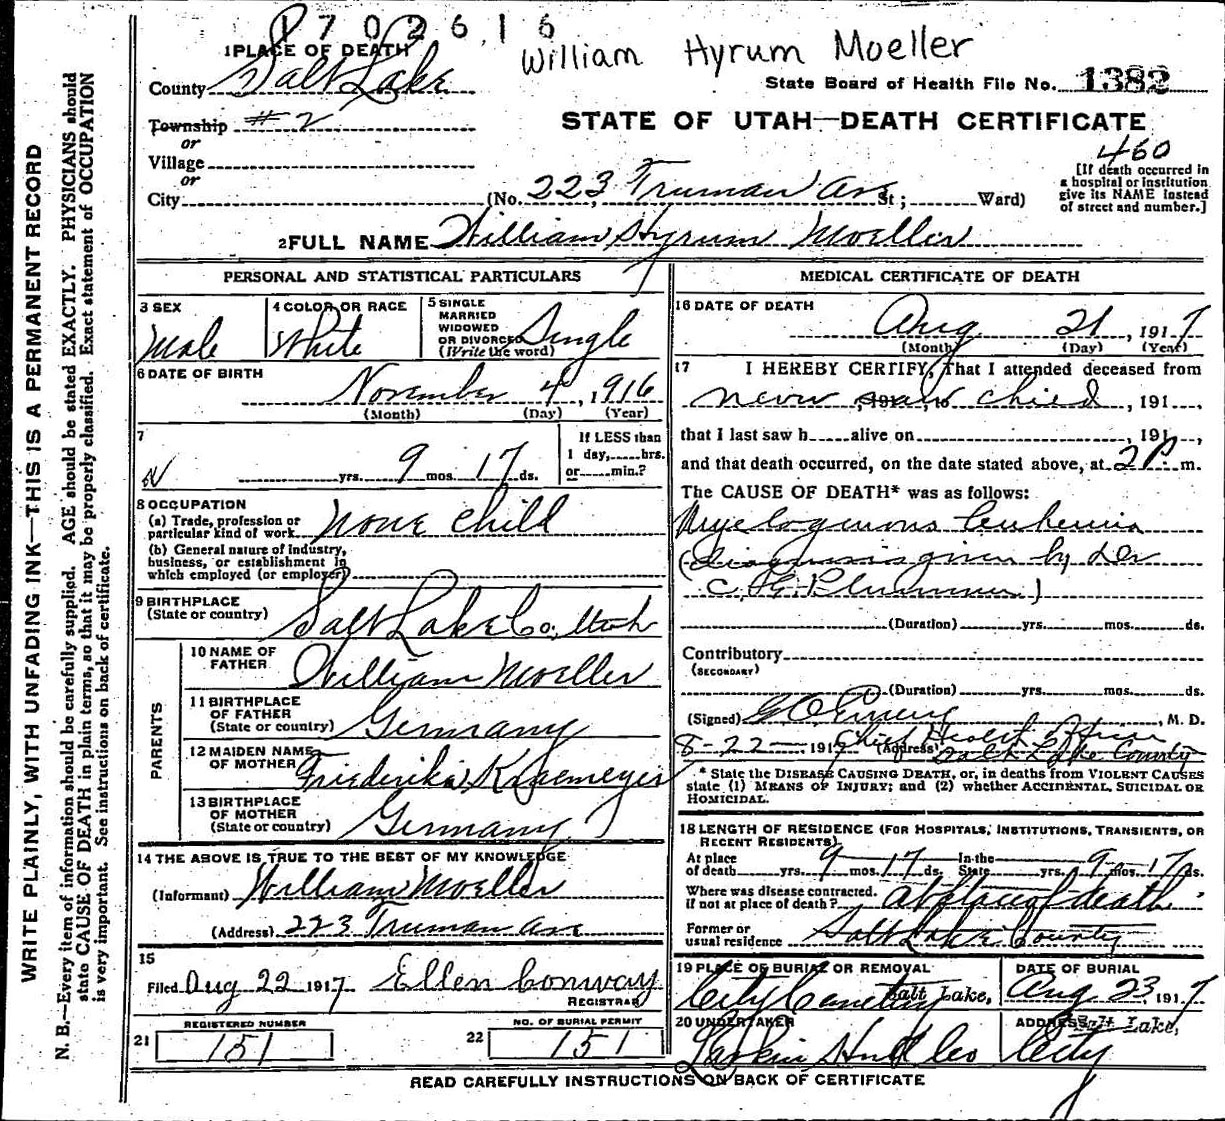 1702616
William Hyrum Moeller
1 PLACE OF DEATH
County Salt Lake
State Board of Health File No. 1382
Township # 2
or
STATE OF UTAH—DEATH CERTIFICATE
Village
or
460
[If death occurred in a hospital or institution give its NAME instead of street and number.]
City (No. 223 Truman Ave St; Ward)
2 FULL NAME William Hyrum Moeller
PERSONAL AND STATISTICAL PARTICULARS
3 SEX Male
4 COLOR OR RACE White
5 SINGLE MARRIED WIDOWED OR DIVORCED (Write the word) Single
6 DATE OF BIRTH
November 4, 1916
(Month) (Day) (Year)
7
yrs. 9 mos. 17 ds.
If LESS than 1 day, hrs. or min.?
8 OCCUPATION
(a) Trade, profession or particular kind of work None child
(b) General nature of Industry, business, or establishment in which employed (or employer)
9 BIRTHPLACE (State or country) Salt Lake Co; Utah
PARENTS
10 NAME OF FATHER William Moeller
11 BIRTHPLACE OF FATHER (State or country) Germany
12 MAIDEN NAME OF MOTHER Friederika
13 BIRTHPLACE OF MOTHER (State or country) Germany
14 THE ABOVE IS TRUE TO THE BEST OF MY KNOWLEDGE
(Informant) William Moeller
(Address) 223 Truman Ave
15
Filed Aug 22 1917 Ellen Conway
REGISTRAR
21 REGISTERED NUMBER 151
22 NO. OF BURIAL PERMIT 151
MEDICAL CERTIFICATE OF DEATH
16 DATE OF DEATH
Aug 21, 1917
(Month) (Day) (Year)
17 I HEREBY CERTIFY, That I attended deceased from
never saw child, 191
that I last saw h alive on , 191 ,
and that death occurred, on the date stated above, at 2 P. m.
The CAUSE OF DEATH* was as follows:
Myelogenous leukemia
(diagnosis given by Dr
C. G. Plummer)
(Duration) yrs. mos. ds.
Contributory
(SECONDARY)
(Duration) yrs. mos. ds.
(Signed) , M. D.
8-22- 1917 (Address) Chief Health Officer
Salt Lake County
* State the DISEASE CAUSING DEATH, or, in deaths from VIOLENT CAUSES
state (1) MEANS OF INJURY; and (2) whether ACCIDENTAL, SUICIDAL OR
HOMICIDAL.
18 LENGTH OF RESIDENCE (FOR HOSPITALS, INSTITUTIONS, TRANSIENTS, OR
RECENT RESIDENTS)
At place of death yrs. 9 mos. 17 ds. In the State yrs. 9 mos. 17 ds.
Where was disease contracted, if not at place of death? At place of death
Former or usual residence Salt Lake County
19 PLACE OF BURIAL OR REMOVAL City Cemetery Salt Lake,
DATE OF BURIAL Aug 23, 1917
20 UNDERTAKER Larkin Hull Co
ADDRESS Salt Lake, City
READ CAREFULLY INSTRUCTIONS ON BACK OF CERTIFICATE
WRITE PLAINLY, WITH UNFADING INK—THIS IS A PERMANENT RECORD
N. B.—Every item of information should be carefully supplied. AGE should be stated EXACTLY. PHYSICIANS should
state CAUSE OF DEATH in plain terms, so that it may be properly classified. Exact statement of OCCUPATION
is very important. See instructions on back of certificate.